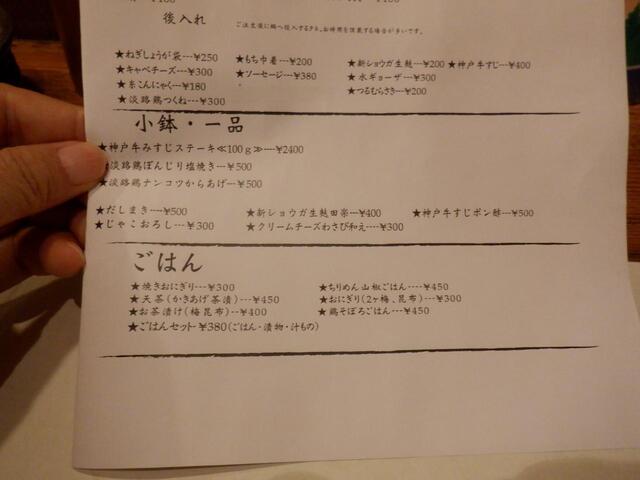 後入れ
ご注文後に鍋へ投入するタネ、お時間を頂戴する場合が多いです。
★ねぎしょうが袋---¥250 ★もち巾着---¥200 ★新ショウガ生麩---¥200 ★神戸牛すじ---¥400
★キャベチーズ---¥300 ★ソーセージ---¥380 ★水ギョーザ---¥300
★糸こんにゃく---¥180 ★つるむらさき---¥200
★淡路鶏つくね---¥300
小鉢・一品
★神戸牛みすじステーキ≪100g≫---¥2400
★淡路鶏ぼんじり塩焼き---¥500
★淡路鶏ナンコツからあげ---¥500
★だしまき----¥500 ★新ショウガ生麩田楽---¥400 ★神戸牛すじポン酢---¥500
★じゃこおろし---¥300 ★クリームチーズわさび和え----¥300
ごはん
★焼きおにぎり---¥300 ★ちりめん山椒ごはん----¥450
★天茶(かきあげ茶漬)---¥450 ★おにぎり(2ヶ梅、昆布)---¥300
★お茶漬け(梅昆布)--¥400 ★鶏そぼろごはん---¥450
★ごはんセット-¥380(ごはん・漬物・汁もの)